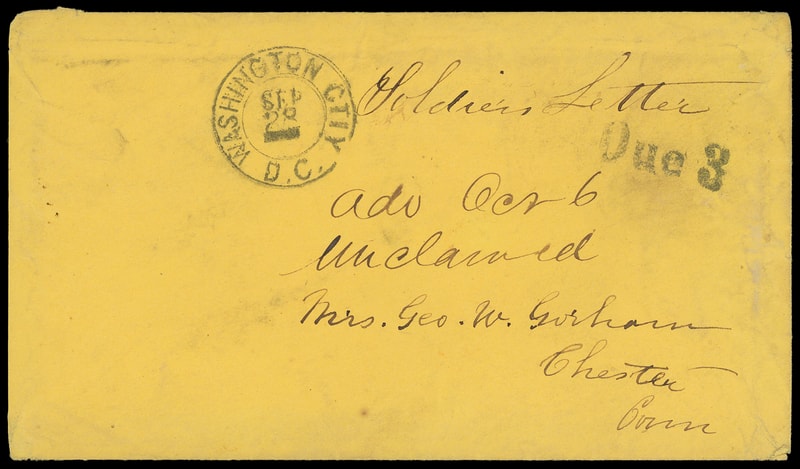 WASHINGTON CTIY
SEP
28
D.C.
Soldiers Letter
Due 3
Adv Oct 6
Unclaimed
Mrs. Geo. W. Gorham
Chester
Conn